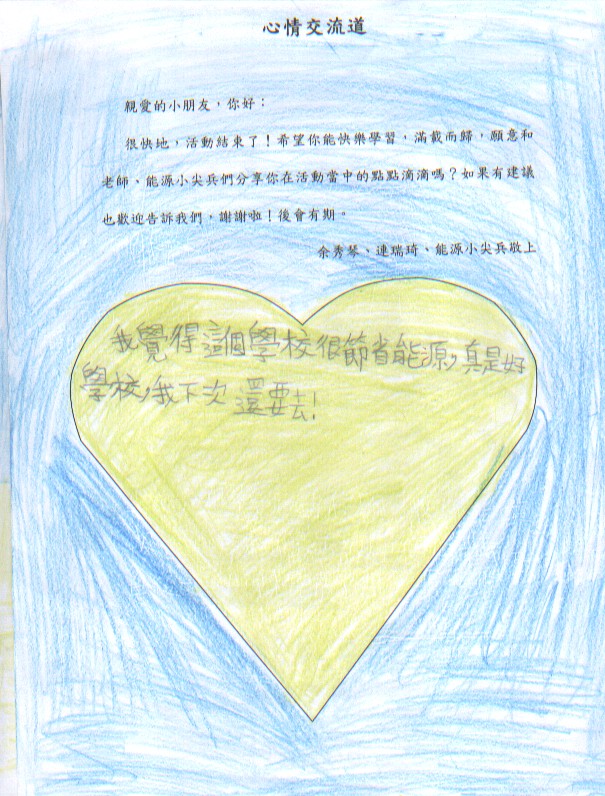 心情交流道
親愛的小朋友，你好：
很快地，活動結束了！希望你能快樂學習，滿載而歸，願意和
老師、能源小尖兵們分享你在活動當中的點點滴滴嗎？如果有建議
也歡迎告訴我們，謝謝啦！後會有期。
余秀琴、連瑞琦、能源小尖兵敬上
我覺得這個學校很節省能源，真是好
學校，我下次還要去！